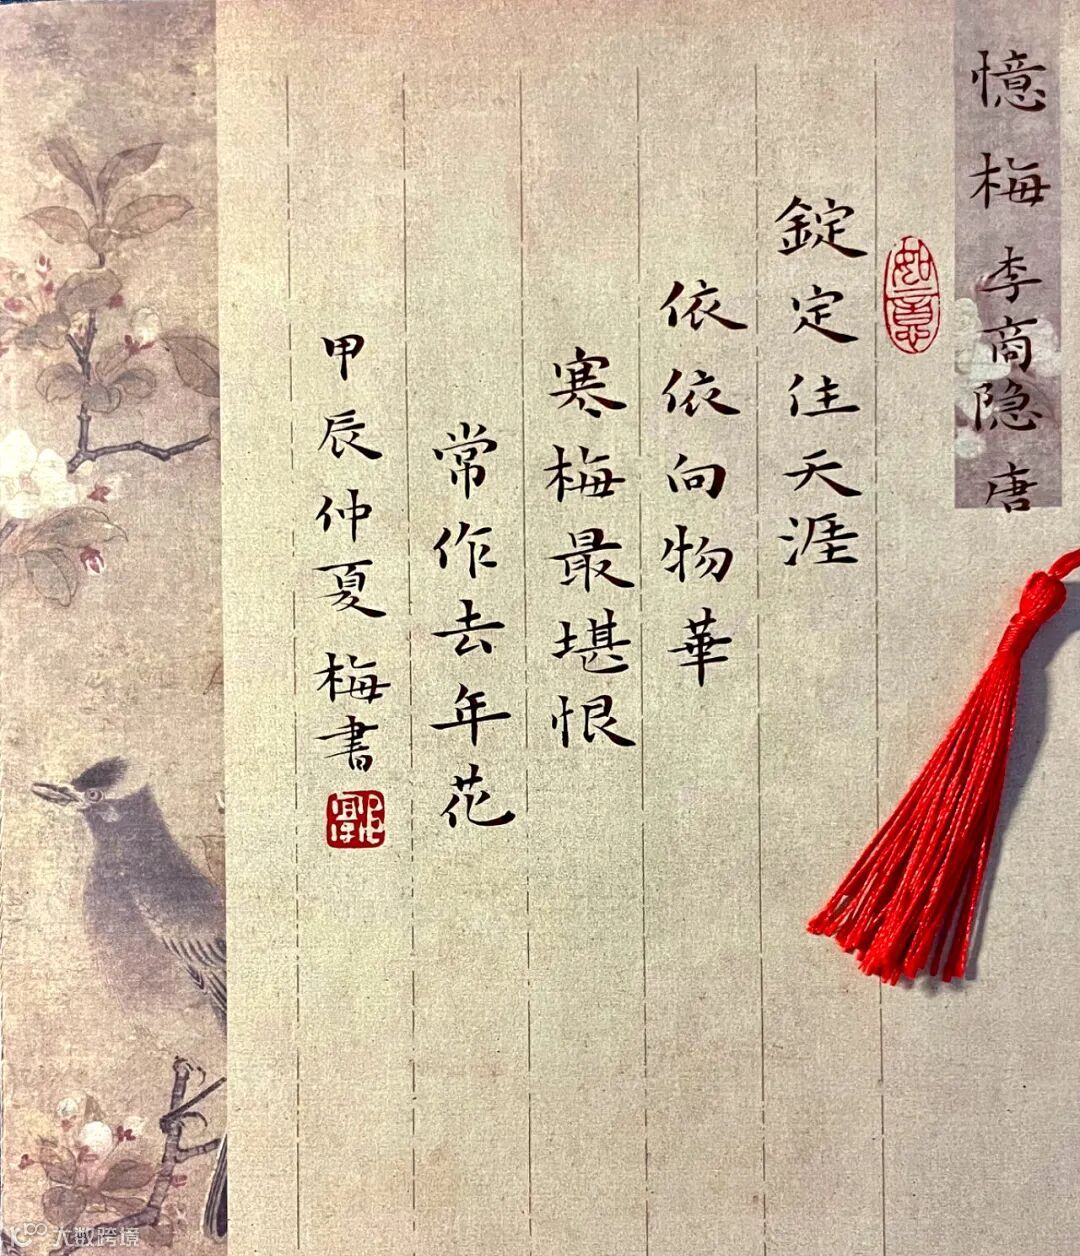 憶梅 李商隐 唐
如意
錠定住天涯
依依向物華
寒梅最堪恨
常作去年花
甲辰仲夏 梅書
大数跨境